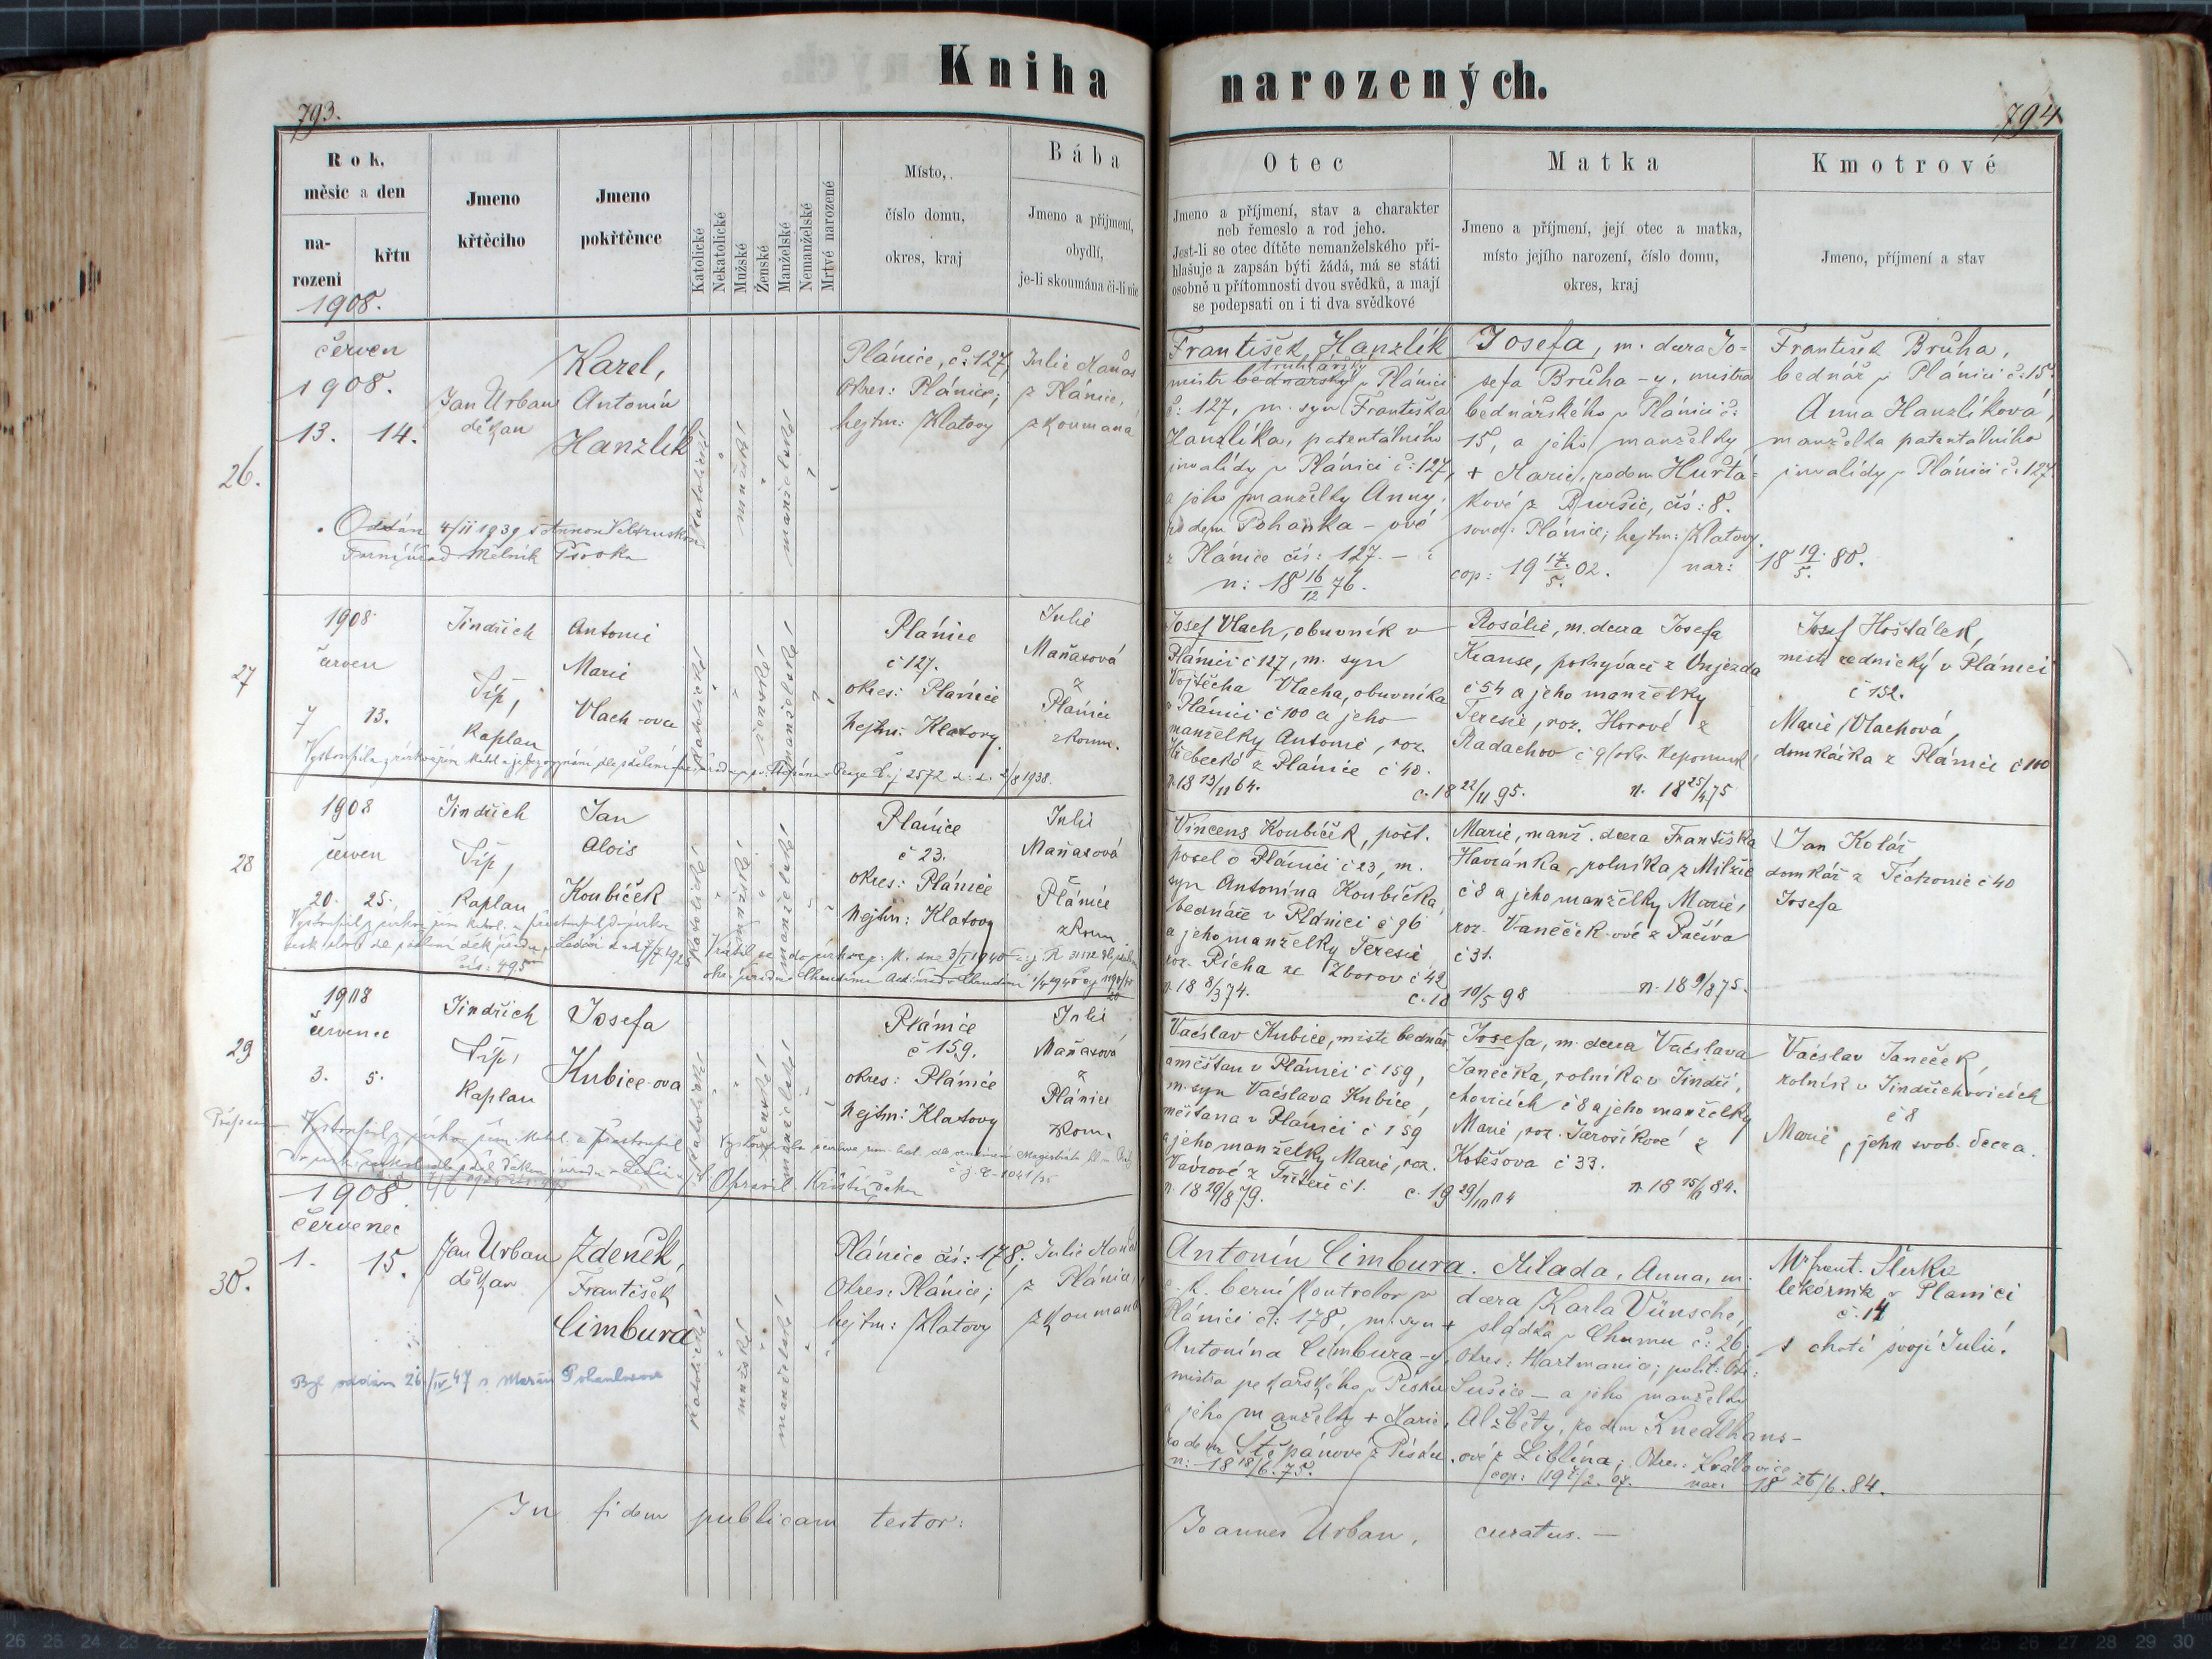 Kniha narozených.
793.
794
Rok, měsíc a den
na-
rození
křtu
Jmeno
křtěcího
Jmeno
pokřtěnce
Katolické
Nekatolické
Mužské
Ženské
Manželské
Nemanželské
Mrtvé narozené
Místo,
číslo domu,
okres, kraj
Bába
Jmeno a přijmení,
obydlí,
je-li skoumána či-li nic
Otec
Jmeno a příjmení, stav a charakter
neb řemeslo a rod jeho.
Jest-li se otec dítěte nemanželského při-
hlašuje a zapsán býti žádá, má se státi
osobně u přítomnosti dvou svědků, a mají
se podepsati on i ti dva svědkové
Matka
Jmeno a příjmení, její otec a matka,
místo jejího narození, číslo domu,
okres, kraj
Kmotrové
Jmeno, příjmení a stav
1908.
26.
červen
1908.
13. 14.
Jan Urban
děkan
Karel,
Antonín
Hanzlík
katolické
mužské
manželské
Plánice, č: 127,
Okres: Plánice;
hejtm: Klatovy
Julie Maňas
z Plánice,
zkoumaná
František Hanzlík
truhlářský
mistr bednářský v Plánici
č: 127, m. syn Františka
Hanzlíka, patentálního
invalidy v Plánici č: 127,
a jeho manželky Anny,
rodem Pohanka-ové
z Plánice čís: 127.
n: 18 16/12 76.
Josefa, m. dcera Jo-
sefa Brůha-y, mistra
bednářského v Plánici č:
15, a jeho manželky
+ Marie, rodem Huřťá-
kové z čís: 8.
soud: Plánice; hejtm: Klatovy
cop: 19 17/5 02. nar: 18 19/5 80.
František Brůha,
bednář v Plánici č: 15.
Anna Hanzlíková,
manželka patentálního
invalidy v Plánici č: 127.
Oddán 4/II 1939 s Annou Veltruskou
Farní úřad Mělník Pšovka
27
1908
červen
7 13.
Jindřich
Šíp,
Kaplan
Antonie
Marie
Vlach-ova
katolické
ženské
manželské
Plánice
č 127.
okres: Plánice
hejtm: Klatovy.
Julie
Maňasová
z
Plánice
zkoum.
Josef Vlach, obuvník v
Plánici č 127, m. syn
Vojtěcha Vlacha, obuvníka
v Plánici č 100 a jeho
manželky Antonie, roz.
z Plánice č 40.
n. 18 13/11 64.
Rosálie, m. dcera Josefa
Krause, pokrývače z Újezda
č 54 a jeho manželky
Teresie, roz. Horové z
Radachov č 9 okr. Nepomuk
c. 18 22/11 95. n. 18 25/4 75
Josef Hošťálek,
mistr řednický v Plánici
č 152.
Marie Vlachová,
domkářka z Plánice č 100
č. j. 2572 2/8 1938.
28
1908
červen
20. 25.
Jindřich
Šíp,
Kaplan
Jan
Alois
Koubíček
katolické
mužské
manželské
Plánice
č 23.
okres: Plánice
hejtm: Klatovy
Julie
Maňasová
z
Plánice
zkoum
Vincenc Koubíček, pošt.
posel v Plánici č 23, m.
syn Antonína Koubíčka,
bednáře v Plánici č 96
a jeho manželky Teresie
roz. Pícha ze Zborov č 42
n. 18 8/3 74.
Marie, manž. dcera Františka
Havránka, rolníka z Milčic
č 8 a jeho manželky Marie,
roz. Vaněček-ové z Pačiva
č 31.
c. 18 10/5 98 n. 18 9/8 75.
Jan Kolář
domkář z Těchonic č 40
Josefa
čís: 495
29
1908
červenec
3. 5.
Jindřich
Šíp,
Kaplan
Josefa
Kubice-ova
katolické
ženské
manželské
Plánice
č 159.
okres: Plánice
hejtm: Klatovy
Julie
Maňasová
z
Plánice
zkoum.
Vácslav Kubice, mistr bednář.
a měšťan v Plánici č 159,
m. syn Vácslava Kubice,
měšťana v Plánici č 159
a jeho manželky Marie, roz.
Vávrové z č 1.
n. 18 29/8 79.
Josefa, m. dcera Vácslava
Janečka, rolníka v Jindři-
chovicích č 8 a jeho manželky
Marie, roz. Jarošíkové z
Kotěšova č 33.
c. 19 29/10 04 n. 18 84.
Vácslav Janeček,
rolník v Jindřichovicích
č 8
Marie, jeho svob. dcera.
Opravil
30.
1908
červenec
1. 15.
Jan Urban
děkan
Zdeněk,
František
Cimbura
katolické
mužské
manželské
Plánice čís: 178,
Okres: Plánice;
hejtm: Klatovy
Julie Maňas
z Plánice,
zkoumaná
Antonín Cimbura,
c. k. berní kontrolor v
Plánici č: 178, m. syn +
Antonína Cimbura-y,
mistra pekařského v Písku
a jeho manželky + Marie,
rodem Štěpánové z Písku.
n: 18 18/6. 75.
Milada, Anna, m.
dcera Karla Vünsche,
sládka v Chumu č: 26,
Okres: Hartmanic; polit: Okr:
Sušice – a jeho manželky
Alžběty, rodem Knedlhans-
ové z Liblína, Okres: Kralovice
nar. 18 26/6. 84.
Mr frant. Šlerka
lékárník v Plánici
č. 14
s chotí svojí Julií.
Byl oddán 26/IV 47 s Marií
In fidem publicam testor:
Joannes Urban, curatus. —